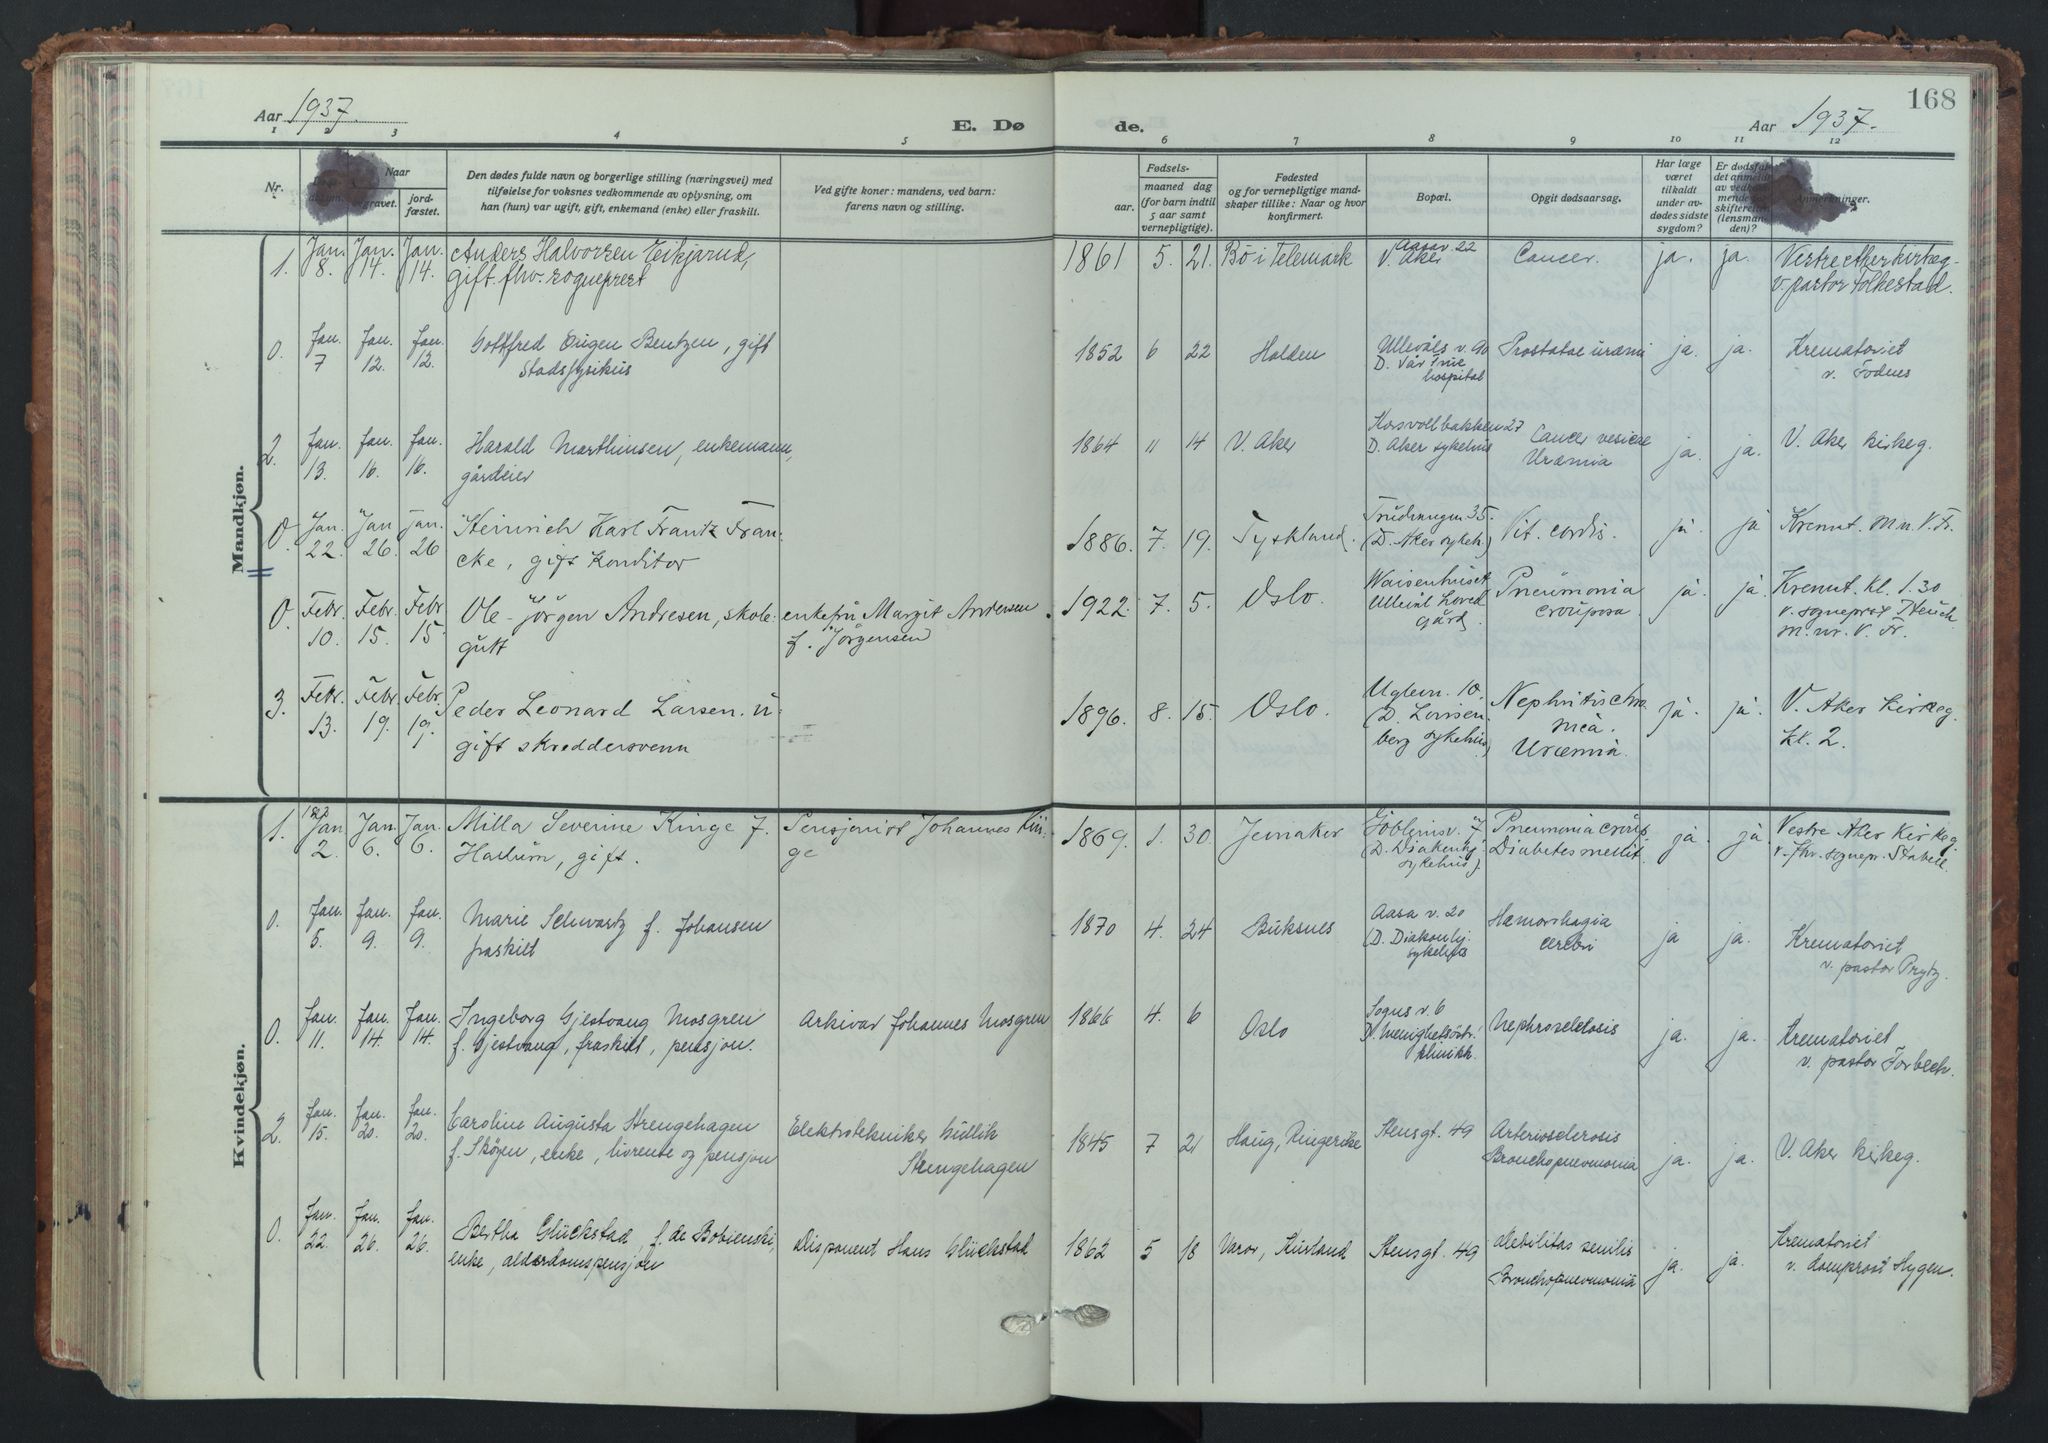 168
Aar 1937.
E. Døde.
Aar 1937.
1 2 3 4 5 6 7 8 9 10 11 12
Nr.
Naar
begravet.
jordfæstet.
Den dødes fulde navn og borgerlige stilling (næringsvei) med
tilføielse for voksnes vedkommende av oplysning, om
han (hun) var ugift, gift, enkemand (enke) eller fraskilt.
Ved gifte koner: mandens, ved barn:
farens navn og stilling.
Fødsels-
aar.
maaned dag
(for barn indtil
5 aar samt
vernepligtige).
Fødested
og for vernepligtige mand-
skaper tillike: Naar og hvor
konfirmert.
Bopæl.
Opgit dødsaarsag.
Har læge
været
tilkaldt
under av-
dødes sidste
sygdom?
Er dødsfal-
det anmeldt
av vedkom-
mende for
skifteretten
(lensman-
den)?
Anmerkninger.
Mandkjøn.
1. Jan. 8. Jan. 14. Jan. 14. Anders Halvorsen Eikjarud,
gift. fhv. sogneprest
1861 5. 21. Bø i Telemark
Aasav. 22
V. Aker
Cancer. ja. ja.
Vestre Aker kirkeg.
v. pastor Folkestad.
0. Jan. 7 Jan. 12. Jan. 12. Gottfred Eugen Bentzen, gift
Stadsfysikus
1852 6 22 Halden
Ullevåls v. 90
D. Vår Frue
hospital
Prostatae uræmi ja. ja.
Krematoriet
v. Fodnes
2. Jan. 13. Jan. 16. Jan. 16. Harald Marthinsen, enkemann,
gårdeier
1864 11 14 V. Aker
Korsvollbakken 27
D. Aker sykehus
Cancer vesicae
Uræmia
ja. ja.
V. Aker kirkeg.
0. Jan. 22. Jan 26. Jan. 26 Heinrich Karl Frantz Fran-
cke, gift konditor
1886. 7. 19. Tyskland.
35.
(D. Aker sykeh.)
Vit. cordis. ja. ja
Kremt. m.n. V. Fr.
0. Febr. 10. Febr. 15. Febr. 15. Ole-Jörgen Andresen, skole-
gutt
enkefru Margit Andersen
f. Jörgensen
1922. 7. 5. Oslo.
Waisenhuset
Ullevål Hoved
gård
Pneumonia
crouposa
ja. ja.
Kremt. kl. 1.30
v. sogneprest Heuch
m. nr. V. Fr.
3. Febr. 13. Febr. 19. Febr. 19. Peder Leonard Larsen. u-
gift skreddersvenn
1896. 8. 15. Oslo.
Uglevn. 10.
(D. Lovisen-
berg sykehus)
Nephritis chro-
nica.
Uræmia.
ja. ja.
V. Aker kirkeg.
kl. 2.
Kvindekjøn.
1. Jan. 2. Jan. 6. Jan. 6. Milla Severine Kinge f.
Hallum, gift.
Pensjonist Johannes Kin-
ge
1869. 1. 30. Jevnaker
Göblinsv. 7
(D. Diakonhj.
sykehus).
Pneumonia croup.
Diabetes mellit.
ja. ja.
Vestre Aker kirkeg.
v. fhv. sognepr. Stabell
0. Jan. 5. Jan. 9. Jan. 9. Marie Schwartz f. Johansen
fraskilt
1870 4. 24 Buksnes
Aasa v. 20
(D. Diakonhj.
sykehus
Hæmorrhagia
cerebri
ja ja.
Krematoriet
v. pastor Prytz.
0. Jan. 11. Jan. 14. Jan. 14. Ingeborg Gjestvang Mosgren
f. Gjestvang, fraskilt, pensjon.
Arkivar Johannes Mosgren
1866 4. 6 Oslo
Sogns v. 6
D. Menighetsöstr.
klinikk.
Nephrosclerosis ja. ja.
Krematoriet
v. pastor Torbech.
2. Jan. 15. Jan. 20. Jan. 20. Caroline Augusta Strengehagen
f. Skögen, enke, livrente og pensjon
Elektrotekniker Gullik
Strengehagen
1845 7 21 Haug, Ringerike
Stensgt. 49
Arteriosclerosis
Bronchopneumonia
ja. ja.
V. Aker kirkeg.
0. Jan. 22. Jan. 26. Jan. 26. Bertha Glückstad f. de Bobienski,
enke, alderdomspensjon
Disponent Hans Glückstad
1862 5 18
Stensgt. 49
Debilitas senilis
Bronchopneumonia
ja. ja.
Krematoriet
v. domprost Hygen.